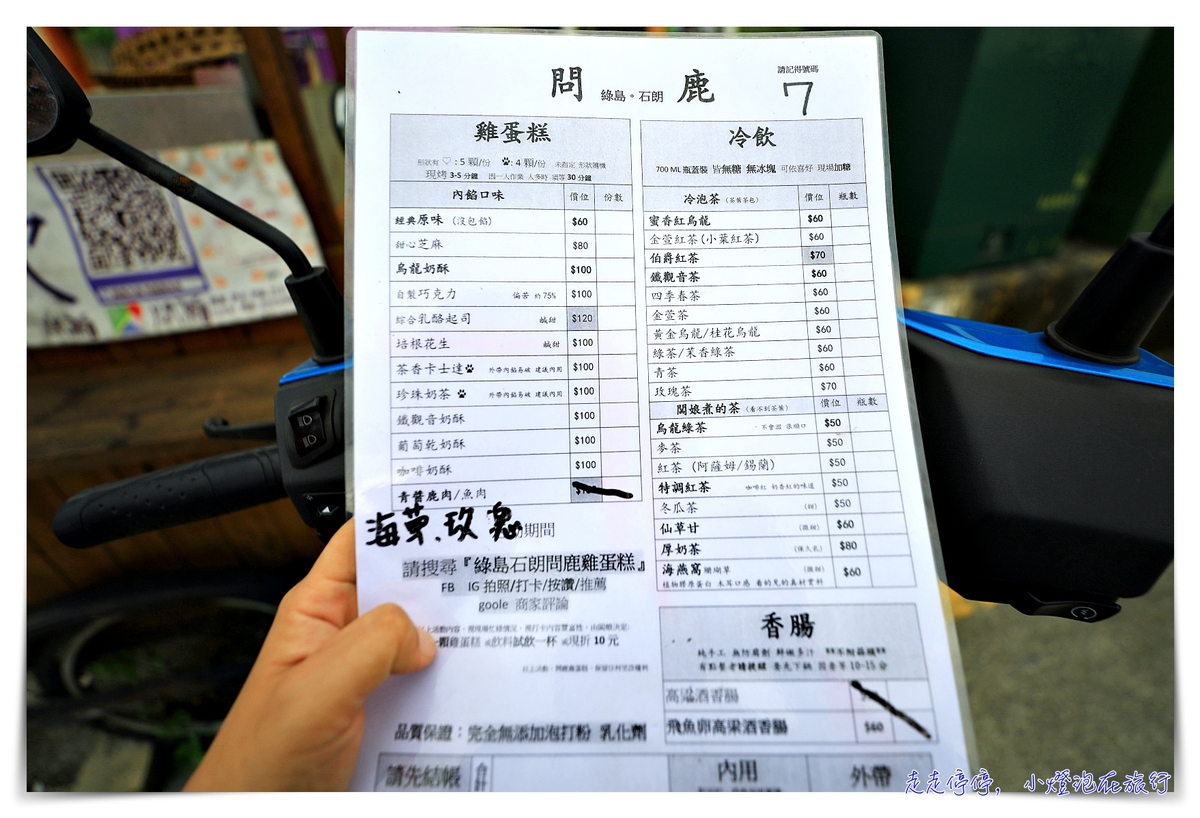 問 綠島。石朗 鹿
請記得號碼
7
雞蛋糕
形狀有♡:5 顆/份 🐾:4 顆/份 未指定 形狀隨機
現烤 3-5 分鐘 因一人作業 人多時 須等 30 分鐘
內餡口味 價位 份數
經典原味 (沒包餡) $60
甜心芝麻 $80
烏龍奶酥 $100
自製巧克力 偏苦 約 75% $100
綜合乳酪起司 鹹甜 $120
培根花生 鹹甜 $100
茶香卡士達🐾 外帶內餡易破 建議內用 $100
珍珠奶茶🐾 外帶內餡易破 建議內用 $100
鐵觀音奶酥 $100
葡萄乾奶酥 $100
咖啡奶酥 $100
青醬鹿肉/魚肉
海菜.玫瑰
期間
請搜尋『綠島石朗問鹿雞蛋糕』
FB IG 拍照/打卡/按讚/推薦
goole 商家評論
一顆雞蛋糕 或飲料試飲一杯 或現折 10 元
品質保證：完全無添加泡打粉 乳化劑
請先結帳 合計
冷飲
700 ML 瓶蓋裝 皆無糖 無冰塊 可依喜好 現場加糖
冷泡茶 (茶葉茶包) 價位 瓶數
蜜香紅烏龍 $60
金萱紅茶(小葉紅茶) $60
伯爵紅茶 $70
鐵觀音茶 $60
四季春茶 $60
金萱茶 $60
黃金烏龍/桂花烏龍 $60
綠茶/茉香綠茶 $60
青茶 $60
玫瑰茶 $70
闆娘煮的茶 (看不到茶葉) 價位 瓶數
烏龍綠茶 不會澀 很順口 $50
麥茶 $50
紅茶 (阿薩姆/錫蘭) $50
特調紅茶 咖啡紅 奶香紅的味道 $50
冬瓜茶 (甜) $50
仙草甘 (微甜) $60
厚奶茶 (保久乳) $80
海燕窩 珊瑚草 (微甜) $60
植物膠原蛋白 木耳口感 看的見的真材實料
香腸
純手工 無防腐劑 鮮嫩多汁 **不附蒜頭**
有點餐者請提醒 要先下鍋 因要等 10-15 分
高粱酒香腸
飛魚卵高粱酒香腸 $60
內用 外帶
走走停停，小燈泡在旅行